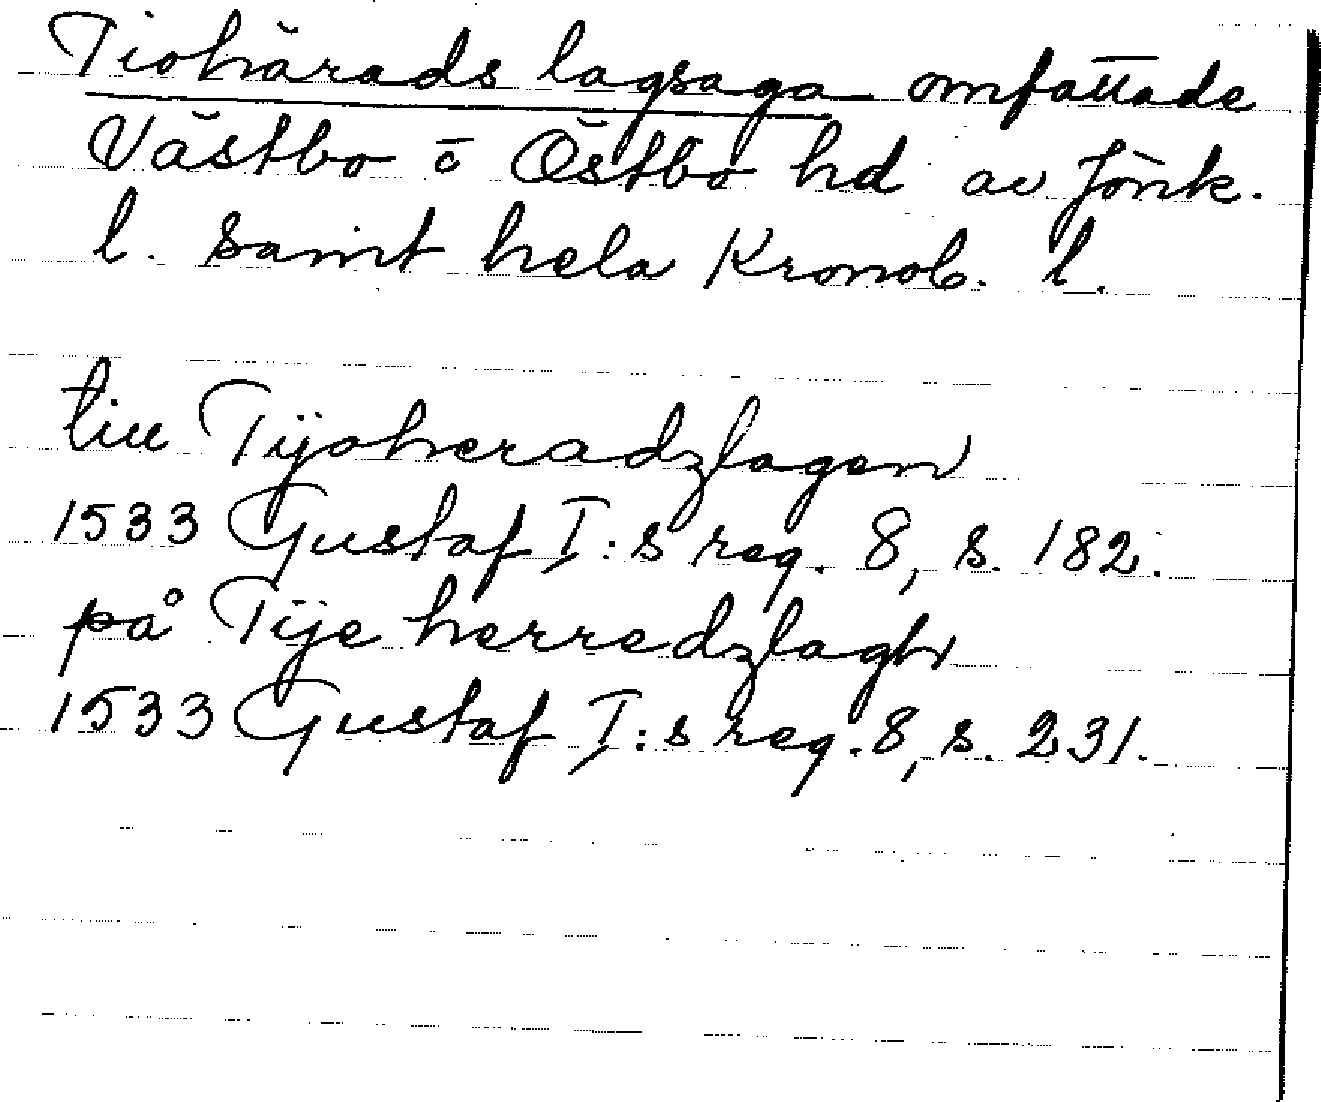 Tiohärads lagsaga omfattade
Västbo o Östbo hd av Jönk.
l. samt hela Kronob. l.
till Tijoheradzlagen
1533 Gustaf I:s reg. 8, s. 182.
på Tije herredzlagh
1533 Gustaf I:s reg. 8, s. 231.